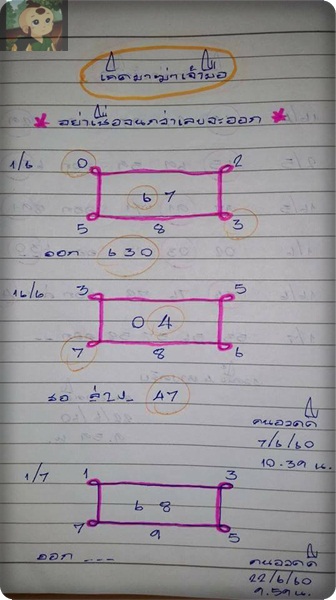 เดดมาฆ่าเจ้ามือ
* อย่าเชื่อจนกว่าเลขจะออก *
1/6 0 2
6 7
5 8 3
ออก 630
16/6 3 5
0 4
7 8 6
ล่าง 47
คนอวดดี
7/6/60
10.39 น.
1/7 1 3
6 8
7 9 5
ออก ---
คนอวดดี
22/6/60
9.59 น.